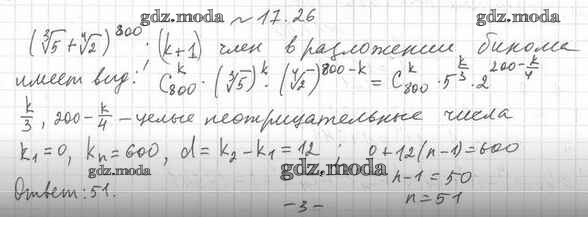 gdz.moda № 17.26 gdz.moda
(∛5 + ∜2)^800 . (k+1) член в разложении бинома
имеет вид: C_800^k · (∛5)^k · (∜2)^(800-k) = C_800^k · 5^(k/3) · 2^(200-k/4)
k/3, 200 - k/4 – целые неотрицательные числа
k₁=0, kₙ=600, d=k₂-k₁=12 ; 0+12(n-1)=600
gdz.moda gdz.moda n-1=50
Ответ: 51. n=51
gdz.moda
-3-